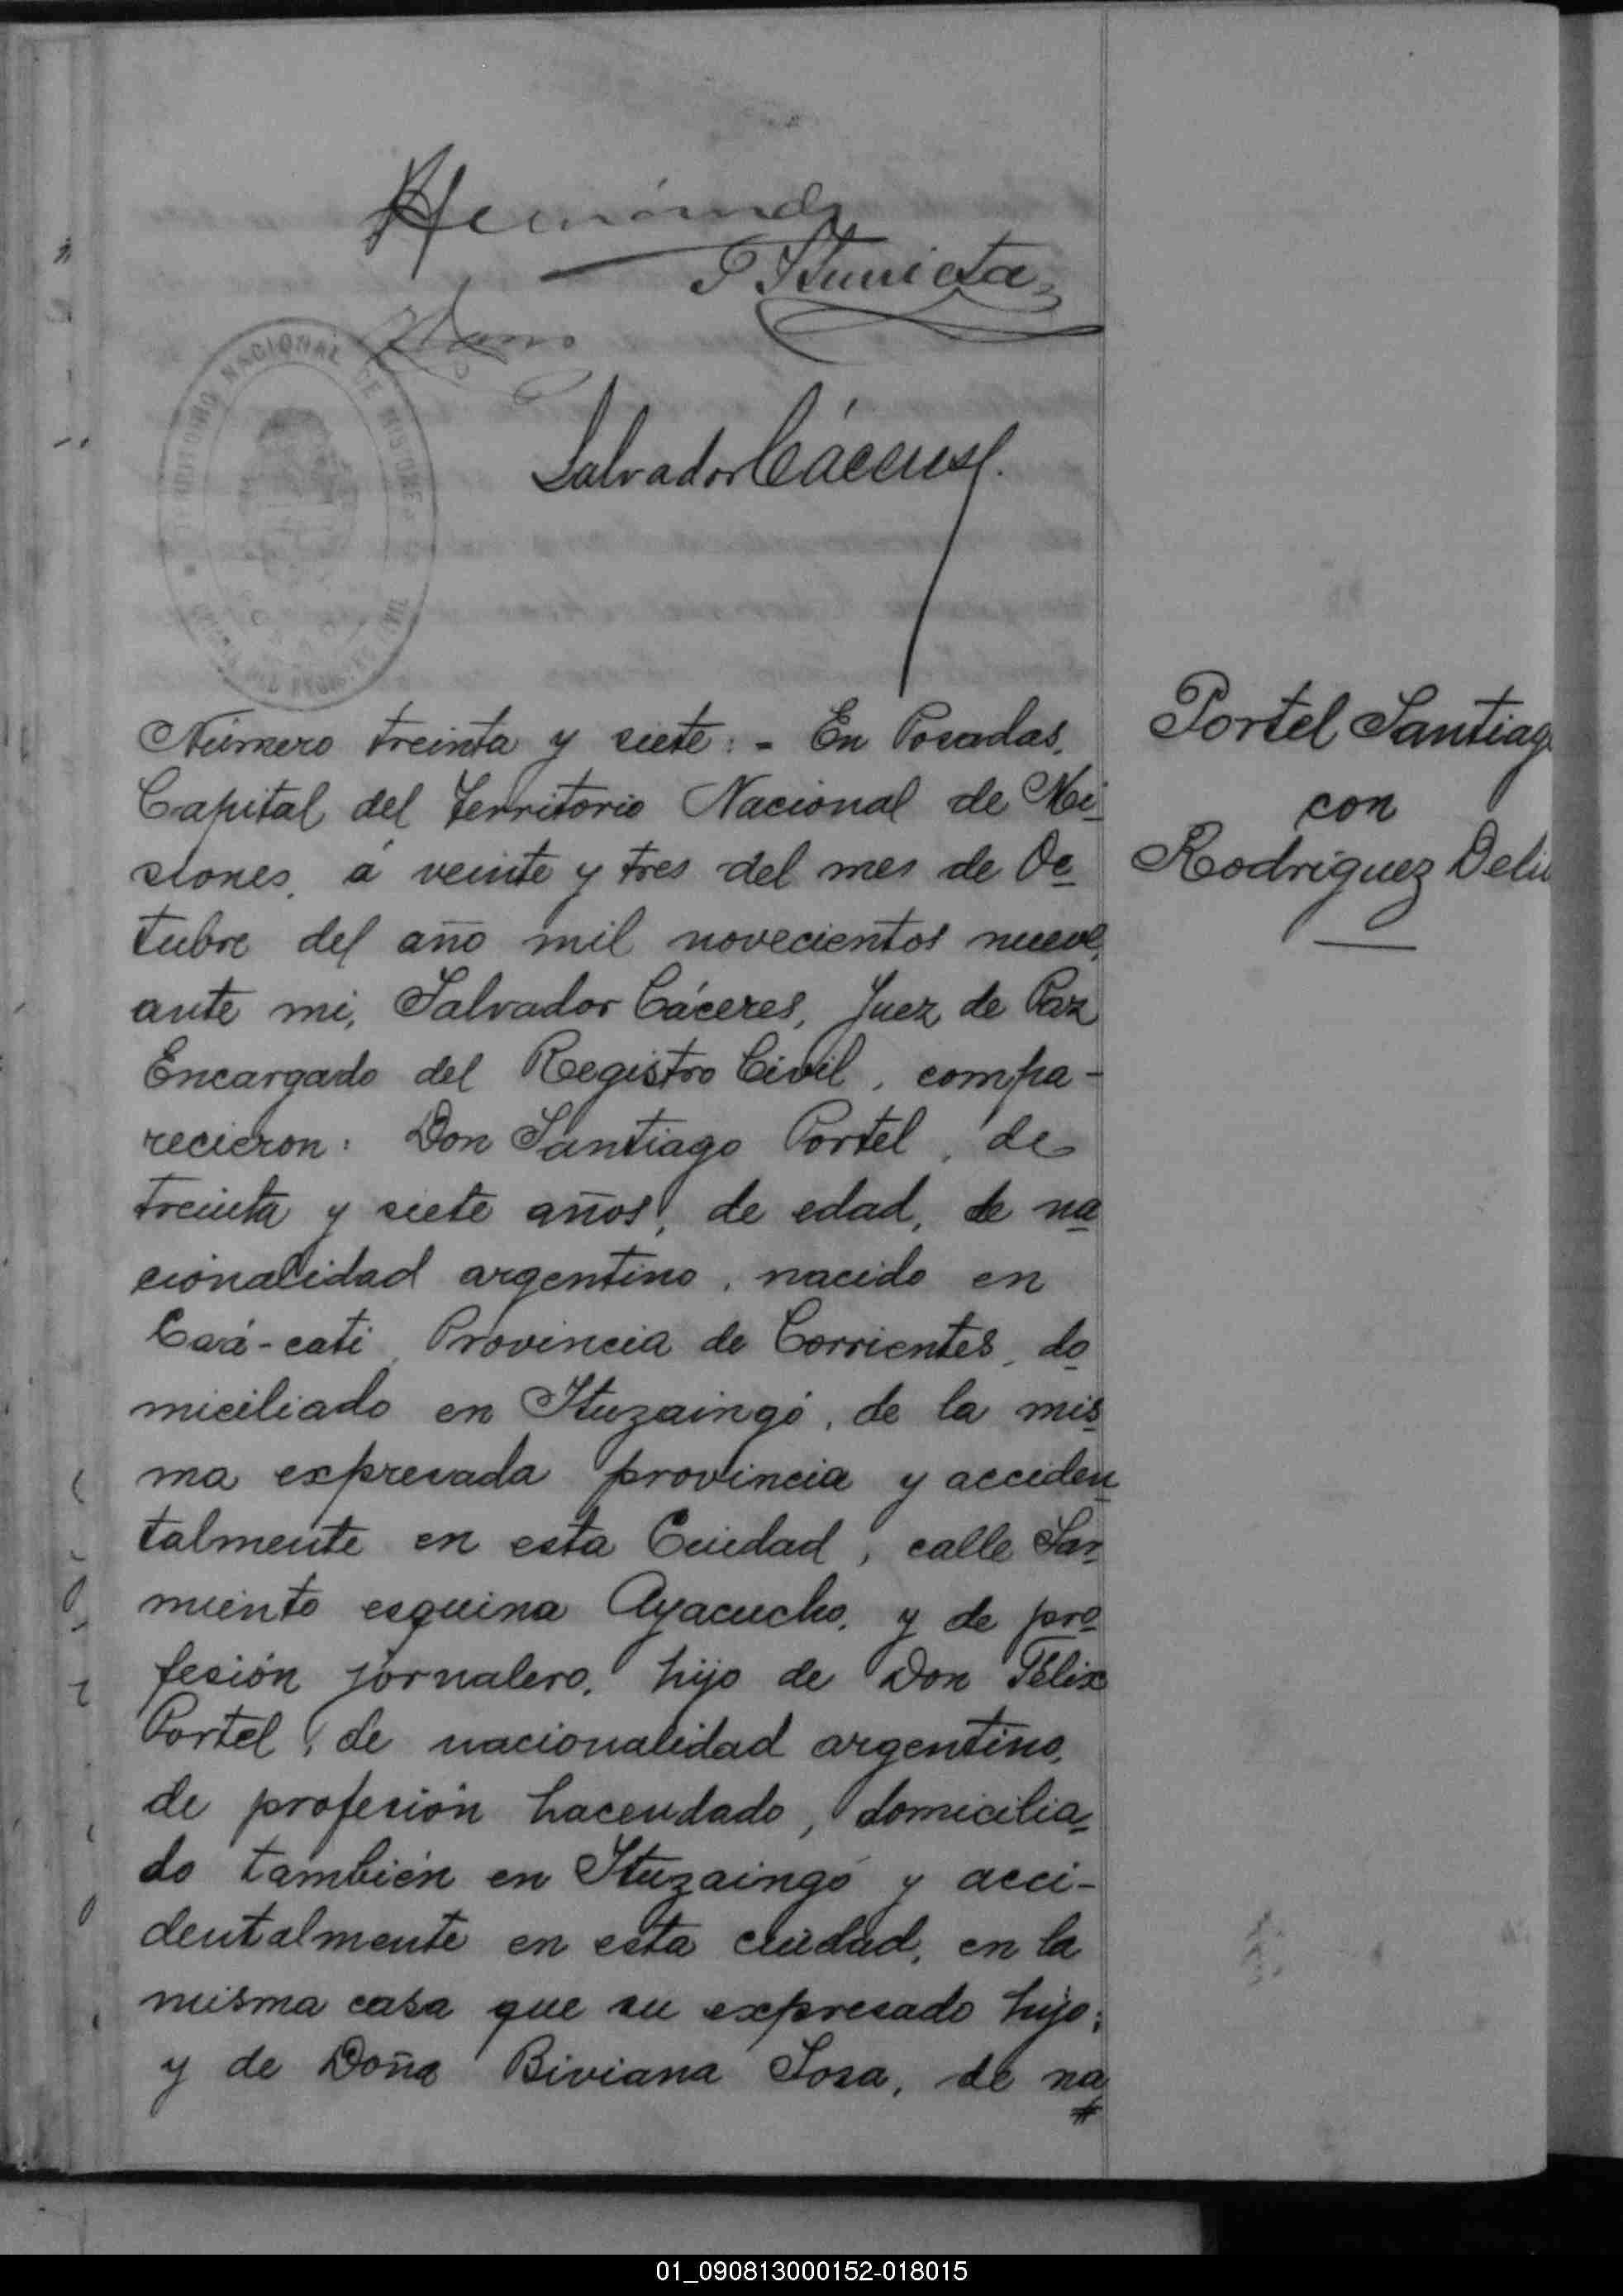 Salvador Cáceres
Número treinta y siete: - En Posadas,
Capital del Territorio Nacional de Mi-
siones, á veinte y tres del mes de Oc-
tubre del año mil novecientos nueve,
ante mi, Salvador Cáceres, Juez de Paz
Encargado del Registro Civil, compa-
recieron: Don Santiago Portel, de
treinta y siete años, de edad, de na-
cionalidad argentino, nacido en
Caá-cati, Provincia de Corrientes, do-
miciliado en Ituzaingó, de la mis-
ma expresada provincia y acciden-
talmente en esta Ciudad, calle Sar-
miento esquina Ayacucho, y de pro-
fesión jornalero, hijo de Don Félix
Portel, de nacionalidad argentino,
de profesión hacendado, domicilia-
do también en Ituzaingó y acci-
dentalmente en esta ciudad, en la
misma casa que su expresado hijo;
y de Doña Biviana Sosa, de na
Portel Santiago
con
Rodríguez
01_090813000152-018015